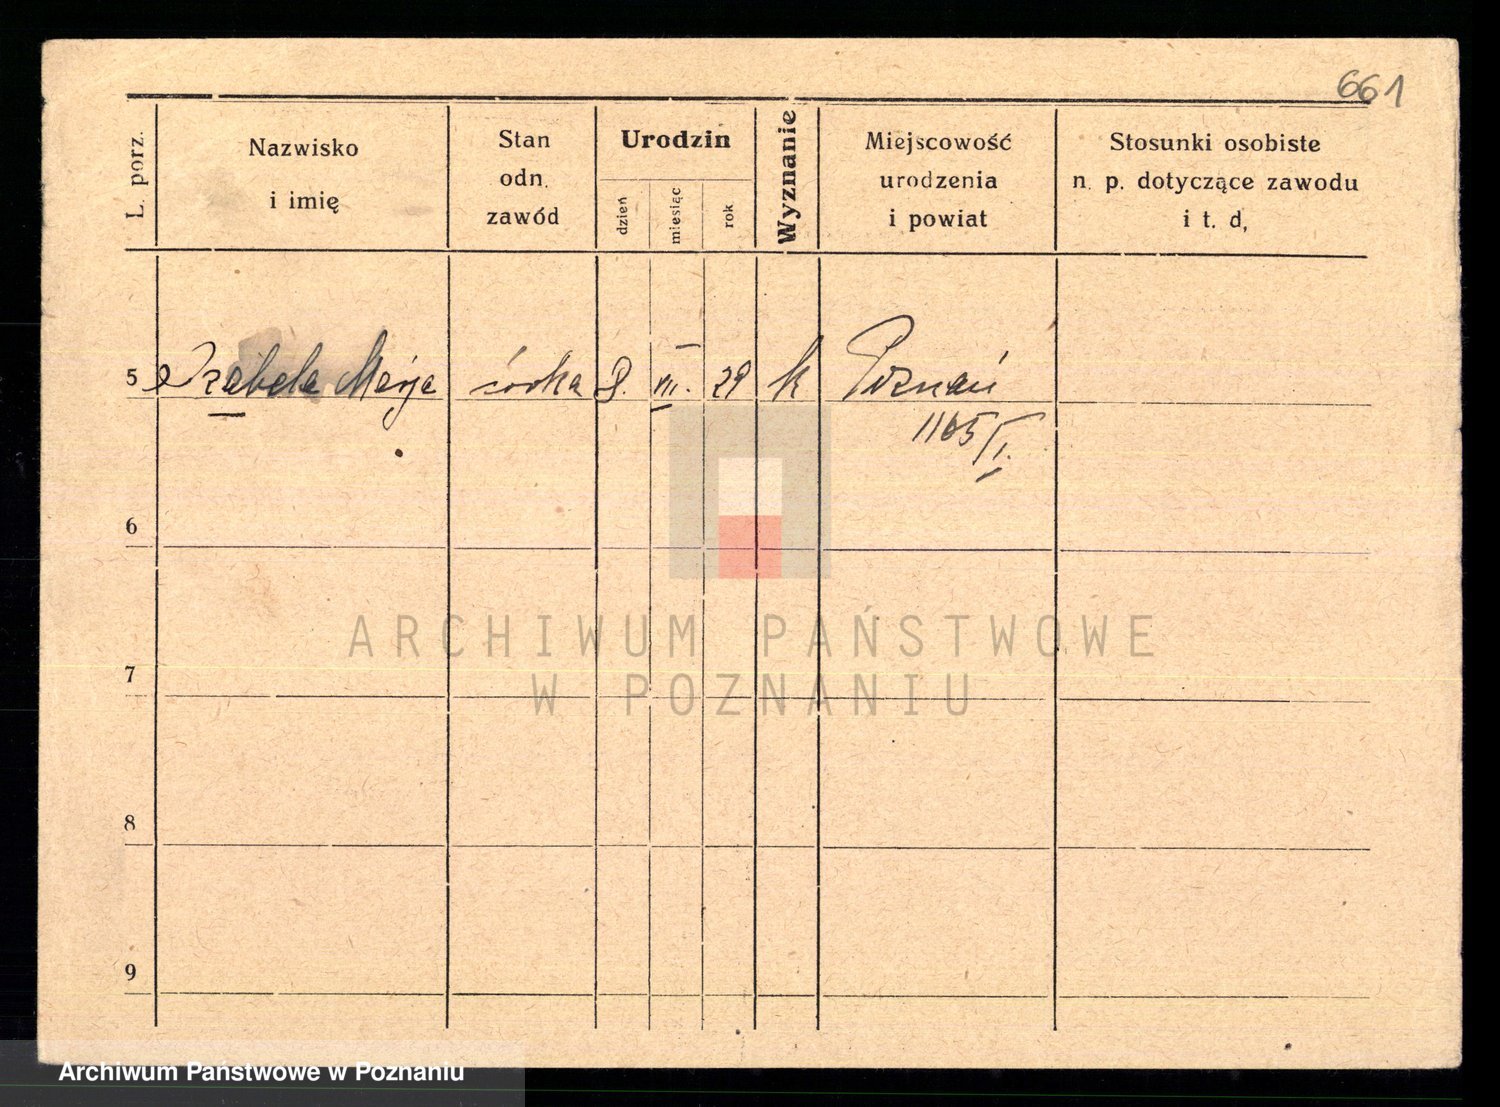 661
L. porz.
Nazwisko
i imię
Stan
odn.
zawód
Urodzin
dzień
miesiąc
rok
Wyznanie
Miejscowość
urodzenia
i powiat
Stosunki osobiste
n. p. dotyczące zawodu
i t. d,
5 Izabela Marja córka 8. III. 29 k Poznań
1165/I.
6
7
8
9
ARCHIWUM PAŃSTWOWE
W POZNANIU
Archiwum Państwowe w Poznaniu